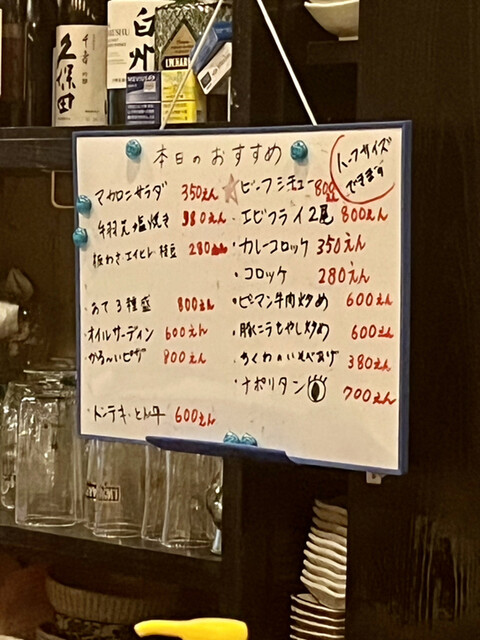 久保田
千寿
白州
I.W.HAR
本日のおすすめ
ハーフサイズ
できます
マカロニサラダ 350えん
手羽元塩焼き 380えん
板わさ・エイヒレ・枝豆 280えん
あて3種盛 800えん
オイルサーディン 600えん
から〜いピザ 800えん
トンテキ・とん平 600えん
☆ビーフシチュー 800
・エビフライ2尾 800えん
・カレーコロッケ 350えん
・コロッケ 280えん
・ピーマン牛肉炒め 600えん
・豚ニラもやし炒め 600えん
・ちくわのいそべあげ 380えん
・ナポリタン 700えん